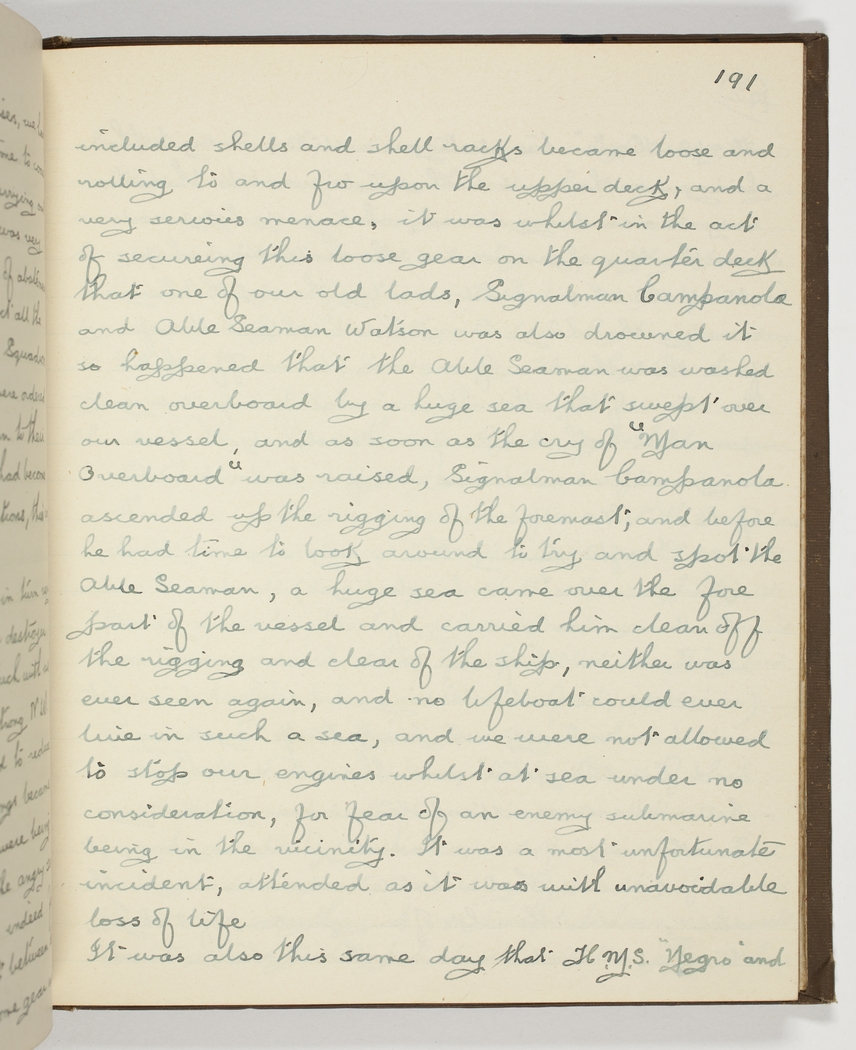 191
included shells and shell racks became loose and
rolling to and fro upon the upper deck, and a
very serious menace, it was whilst in the act
of secureing this loose gear on the quarter deck
that one of our old lads, Signalman Campanola
and Able Seaman Watson was also drowned it
so happened that the Able Seaman was washed
clean overboard by a huge sea that swept over
our vessel, and as soon as the cry of "Man
Overboard" was raised, Signalman Campanola
ascended up the rigging of the foremast, and before
he had time to look around to try and spot the
Able Seaman, a huge sea came over the fore
part of the vessel and carried him clean off
the rigging and clear of the ship, neither was
ever seen again, and no lifeboat could ever
live in such a sea, and we were not allowed
to stop our engines whilst at sea under no
consideration, for fear of an enemy submarine
being in the vicinity. It was a most unfortunate
incident, attended as it was with unavoidable
loss of life
It was also this same day that H.M.S. "Negro" and